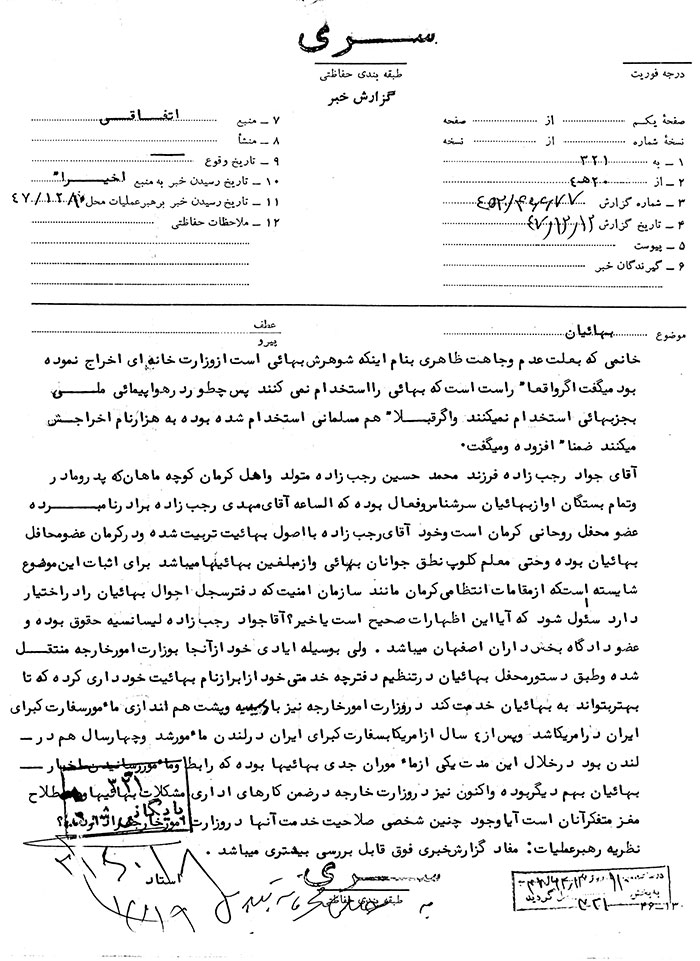 ســری
طبقه بندی حفاظتی
درجه فوریت
گزارش خبر
صفحهٔ یکم از صفحه
نسخهٔ شماره از نسخه
۱ ـ به ۳۲۱
۲ ـ از ۲۰ هـ ۴
۳ ـ شماره گزارش
۴ ـ تاریخ گزارش ۴۷/۱۲/۱۲
۵ ـ پیوست
۶ ـ گیرندگان خبر
۷ ـ منبع اتفـاقـی
۸ ـ منشأ
۹ ـ تاریخ وقوع
۱۰ ـ تاریخ رسیدن خبر به منبع اخیراً
۱۱ ـ تاریخ رسیدن خبر برهبرعملیات محل
۱۲ ـ ملاحظات حفاظتی
موضوع بهائیان
عطف
پیرو
خانمی که بعلت عدم وجاهت ظاهری بنام اینکه شوهرش بهائی است ازوزارت خانه ای اخراج نموده
بود میگفت اگرواقعاً راست است که بهائی رااستخدام نمی کنند پس چطو ردرهواپیمائی ملــی
بجزبهائی استخدام نمیکنند واگرقبــلاً هم مسلمانی استخدام شده بوده به هزارنام اخراجـش
میکنند ضمناً افزوده ومیگفت.
آقای جواد رجب زاده فرزند محمد حسین رجب زاده متولد واهل کرمان کوچه ماهان که پدرومادر
وتمام بستگان اوازبهائیان سرشناس وفعال بوده که الساعه آقای مهدی رجب زاده برادرنامبـــرده
عضو محفل روحانی کرمان است وخود آقای رجب زاده بااصول بهائیت تربیت شده ودرکرمان عضومحافل
بهائیان بوده وحتی معلم کلوپ نطق جوانان بهائی وازمبلغین بهائیهامیباشد برای اثبات این موضوع
شایسته استکه ازمقامات انتظامی کرمان مانند سازمان امنیت که دفترسجل احوال بهائیان رادراختیار
دارد سئول شود که آیااین اظهارات صحیح است یاخیر؟آقاجواد رجب زاده لیسانسیه حقوق بوده و
عضو دادگاه بخش داران اصفهان میباشد . ولی بوسیله ایادی خود ازآنجا بوزارت امورخارجه منتقــل
شده وطبق دستورمحفل بهائیان درتنظیم دفترچه خدمتی خود ازابرازنام بهائیت خود داری کرده که تا
بهتربتواند به بهائیان خدمت کند دروزارت امورخارجه نیز با وپشت هم اندازی مأمورسفارت کبرای
ایران درامریکاشد وپس از ۴ سال ازامریکابسفارت کبرای ایران درلندن مأمورشد وچهارسال هم درـ
لندن بود درخلال این مدت یکی ازمأموران جدی بهائیها بوده که رابط ومأموررسانیدن اخبارـ
بهائیان بهم دیگربوده واکنون نیز دروزارت خارجه درضمن کارهای اداری مشکلات بهائیها
مغز متفکرآنان است آیاوجود چنین شخصی صلاحیت خدمت آنها دروزارت امورخارجه
نظریه رهبرعملیات: مفاد گزارش خبری فوق قابل بررسی بیشتری میباشد .
بایگانی شد
استاد
ســری
طبقه بندی حفاظتی
به
۳۶ـ۱۳۰